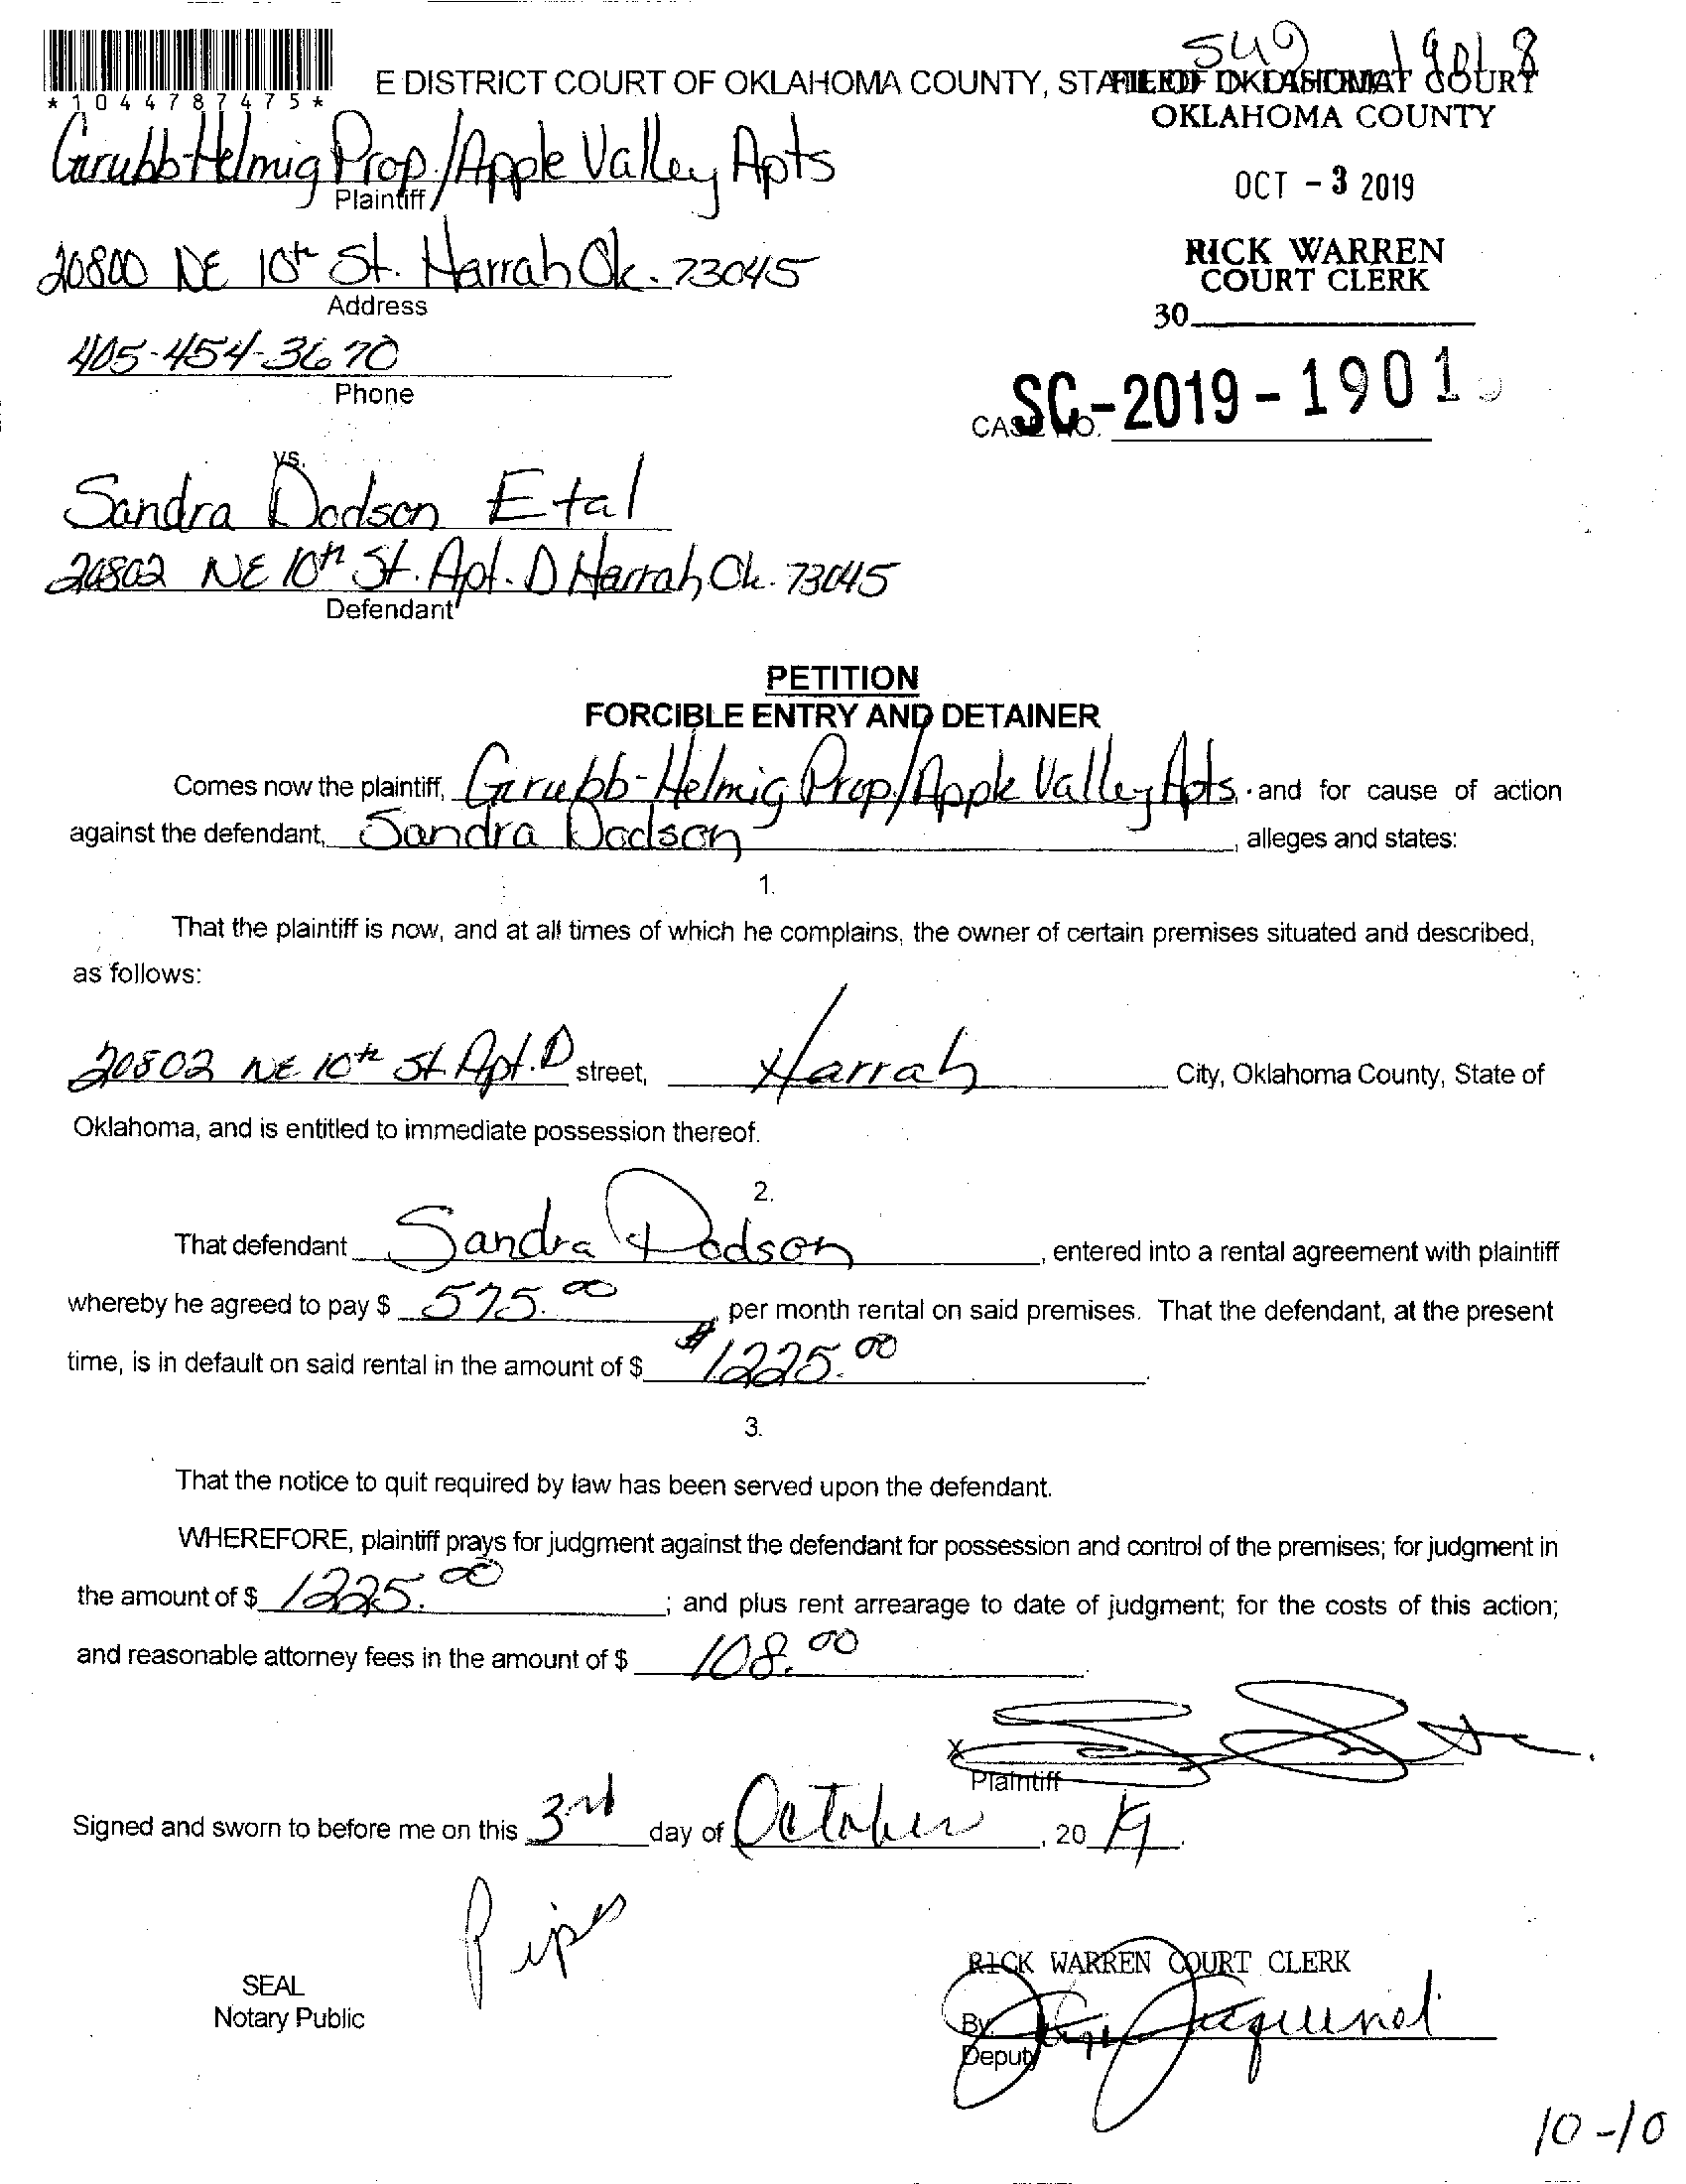 *1044787475*
E DISTRICT COURT OF OKLAHOMA COUNTY, STATE OF OKLAHOMA
FILED IN DISTRICT COURT
OKLAHOMA COUNTY
Grubb-Helmig Prop./Apple Valley Apts
Plaintiff
OCT - 3 2019
20800 NE 10th St. Harrah Ok. 73045
Address
RICK WARREN
COURT CLERK
30
405-454-3670
Phone
CASE NO. SC-2019-1901
vs.
Sandra Dodson Etal
20802 NE 10th St. Apt. D Harrah, Ok. 73045
Defendant
PETITION
FORCIBLE ENTRY AND DETAINER
Comes now the plaintiff, Grubb-Helmig Prop/Apple Valley Apts. and for cause of action
against the defendant, Sandra Dodson, alleges and states:
1.
That the plaintiff is now, and at all times of which he complains, the owner of certain premises situated and described,
as follows:
20802 NE 10th St. Apt. D street, Harrah City, Oklahoma County, State of
Oklahoma, and is entitled to immediate possession thereof.
2.
That defendant Sandra Dodson, entered into a rental agreement with plaintiff
whereby he agreed to pay $ 575.00 per month rental on said premises. That the defendant, at the present
time, is in default on said rental in the amount of $ $1225.00.
3.
That the notice to quit required by law has been served upon the defendant.
WHEREFORE, plaintiff prays for judgment against the defendant for possession and control of the premises; for judgment in
the amount of $ 1225.00; and plus rent arrearage to date of judgment; for the costs of this action;
and reasonable attorney fees in the amount of $ 108.00
X
Plaintiff
Signed and sworn to before me on this 3rd day of October, 2019.
SEAL
Notary Public
RICK WARREN COURT CLERK
By
Deputy
10-10